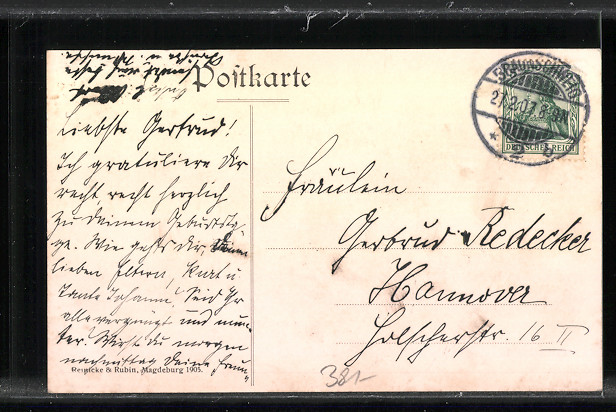 Postkarte
Liebste Gertrud!
Ich gratuliere Dir
recht, recht herzlich
zu deinem Geburtsta-
ge. Wie geht's dir,
lieben Eltern, Kurt u
Tante Johanne. Seid Ihr
alle vergnügt und mun-
ter. Wirst du morgen
nachmittag Deine Freun-
Reinicke & Rubin, Magdeburg 1905.
BRAUNSCHWEIG
27.2.07.
DEUTSCHES REICH
Fräulein
Gertrud Redecker
Hannover
Holscherstr. 16 II
381-